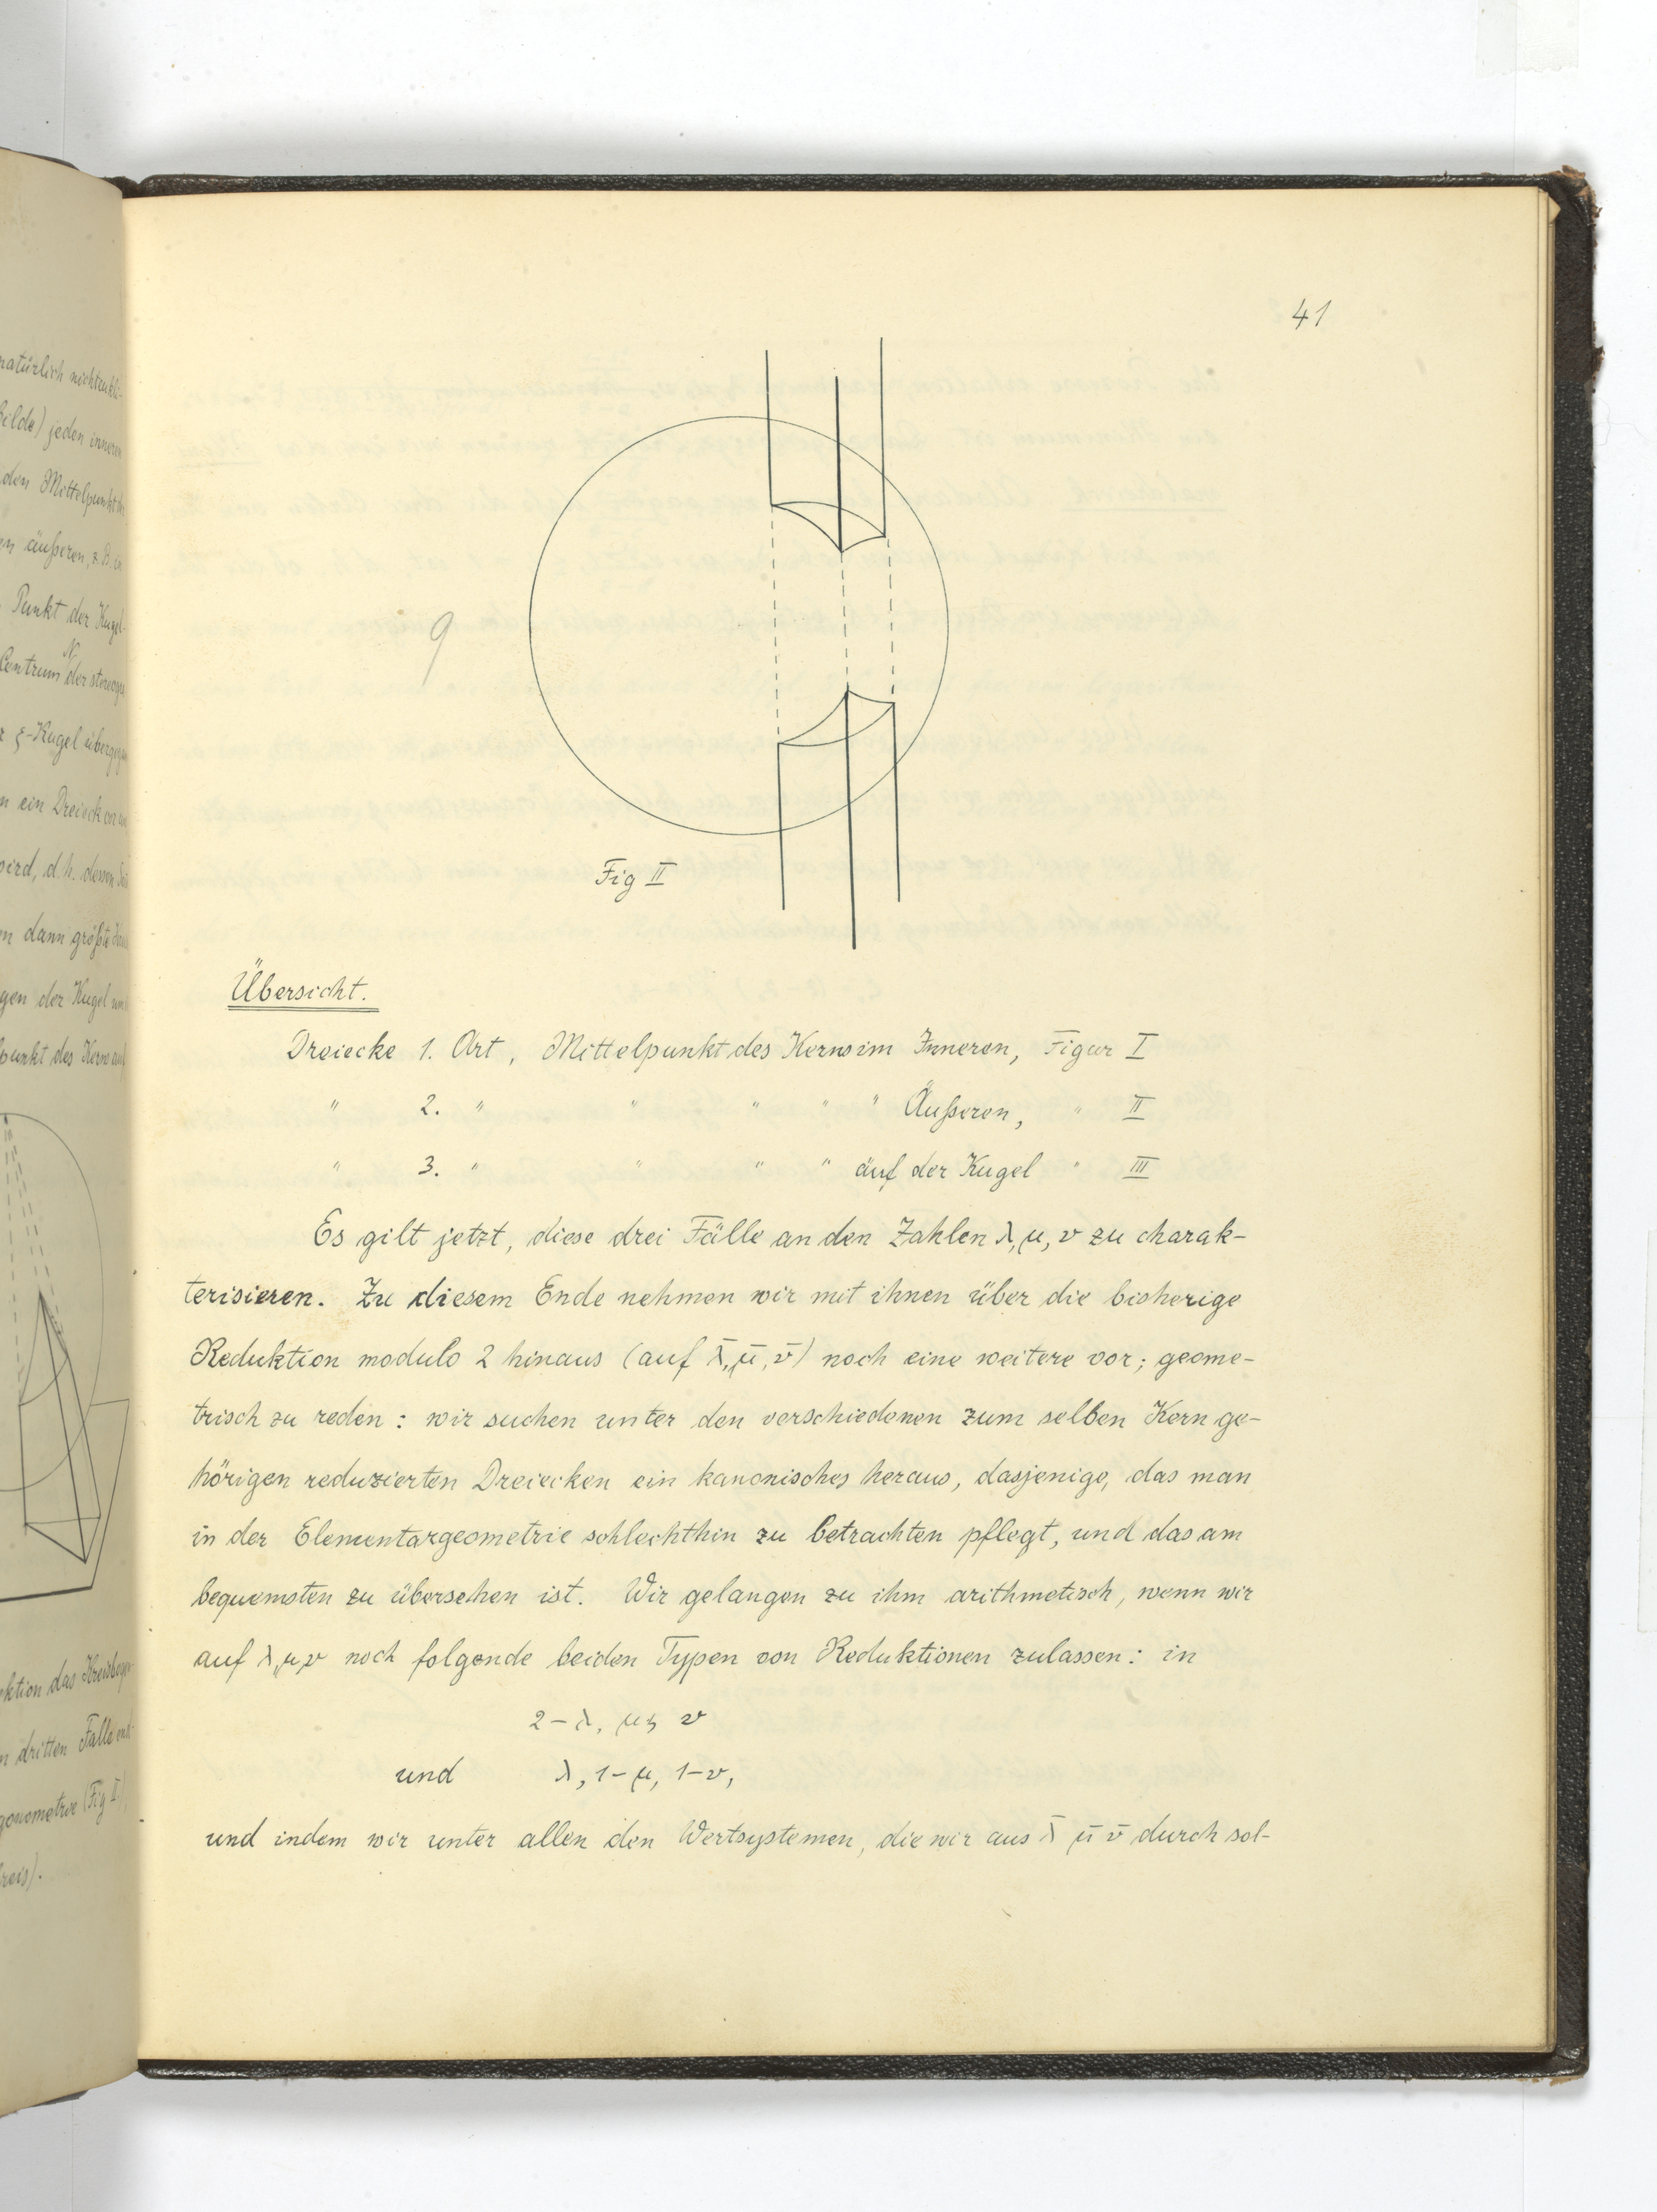 natürlich nichteukli-
Bilde) jeden inneren
den Mittelpunkt
äußeren, z. B. in
Punkt der Kugel-
N
Centrum der stereogr
ξ-Kugel überge
ein Dreieck
wird, d. h. dessen
dann größte
gen der Kugel
punkt des Kerns auf
ktion das Kreisboge
dritten Falle
gonometrie (Fig I)
reis).
41
9
Fig II
Übersicht.
Dreiecke 1. Art, Mittelpunkt des Kerns im Inneren, Figur I
" 2. " " " " " Äußeren, " II
" 3. " " " " auf der Kugel " III
Es gilt jetzt, diese drei Fälle an den Zahlen λ, μ, ν zu charak-
terisieren. Zu diesem Ende nehmen wir mit ihnen über die bisherige
Reduktion modulo 2 hinaus (auf λ̄, μ̄, ν̄) noch eine weitere vor; geome-
trisch zu reden: wir suchen unter den verschiedenen zum selben Kern ge-
hörigen reduzierten Dreiecken ein kanonisches heraus, dasjenige, das man
in der Elementargeometrie schlechthin zu betrachten pflegt, und das am
bequemsten zu übersehen ist. Wir gelangen zu ihm arithmetisch, wenn wir
auf λ, μ, ν noch folgende beiden Typen von Reduktionen zulassen: in
2-λ, μ, ν
und λ, 1-μ, 1-ν,
und indem wir unter allen den Wertsystemen, die wir aus λ̄ μ̄ ν̄ durch sol-